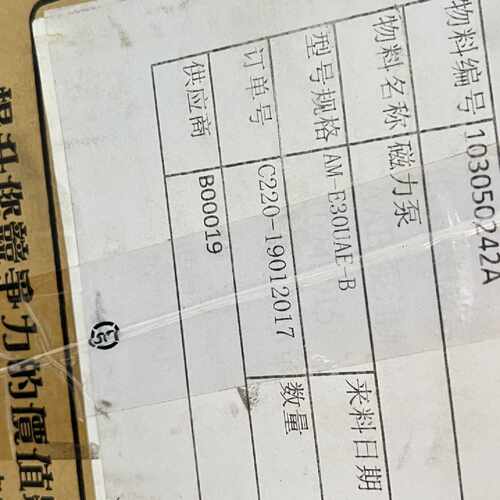 物料编号 103050242A
物料名称 磁力泵
型号规格 AM-E30UAE-B 来料日期
订单号 C220-19012017 数量
供应商 B00019
力的價值